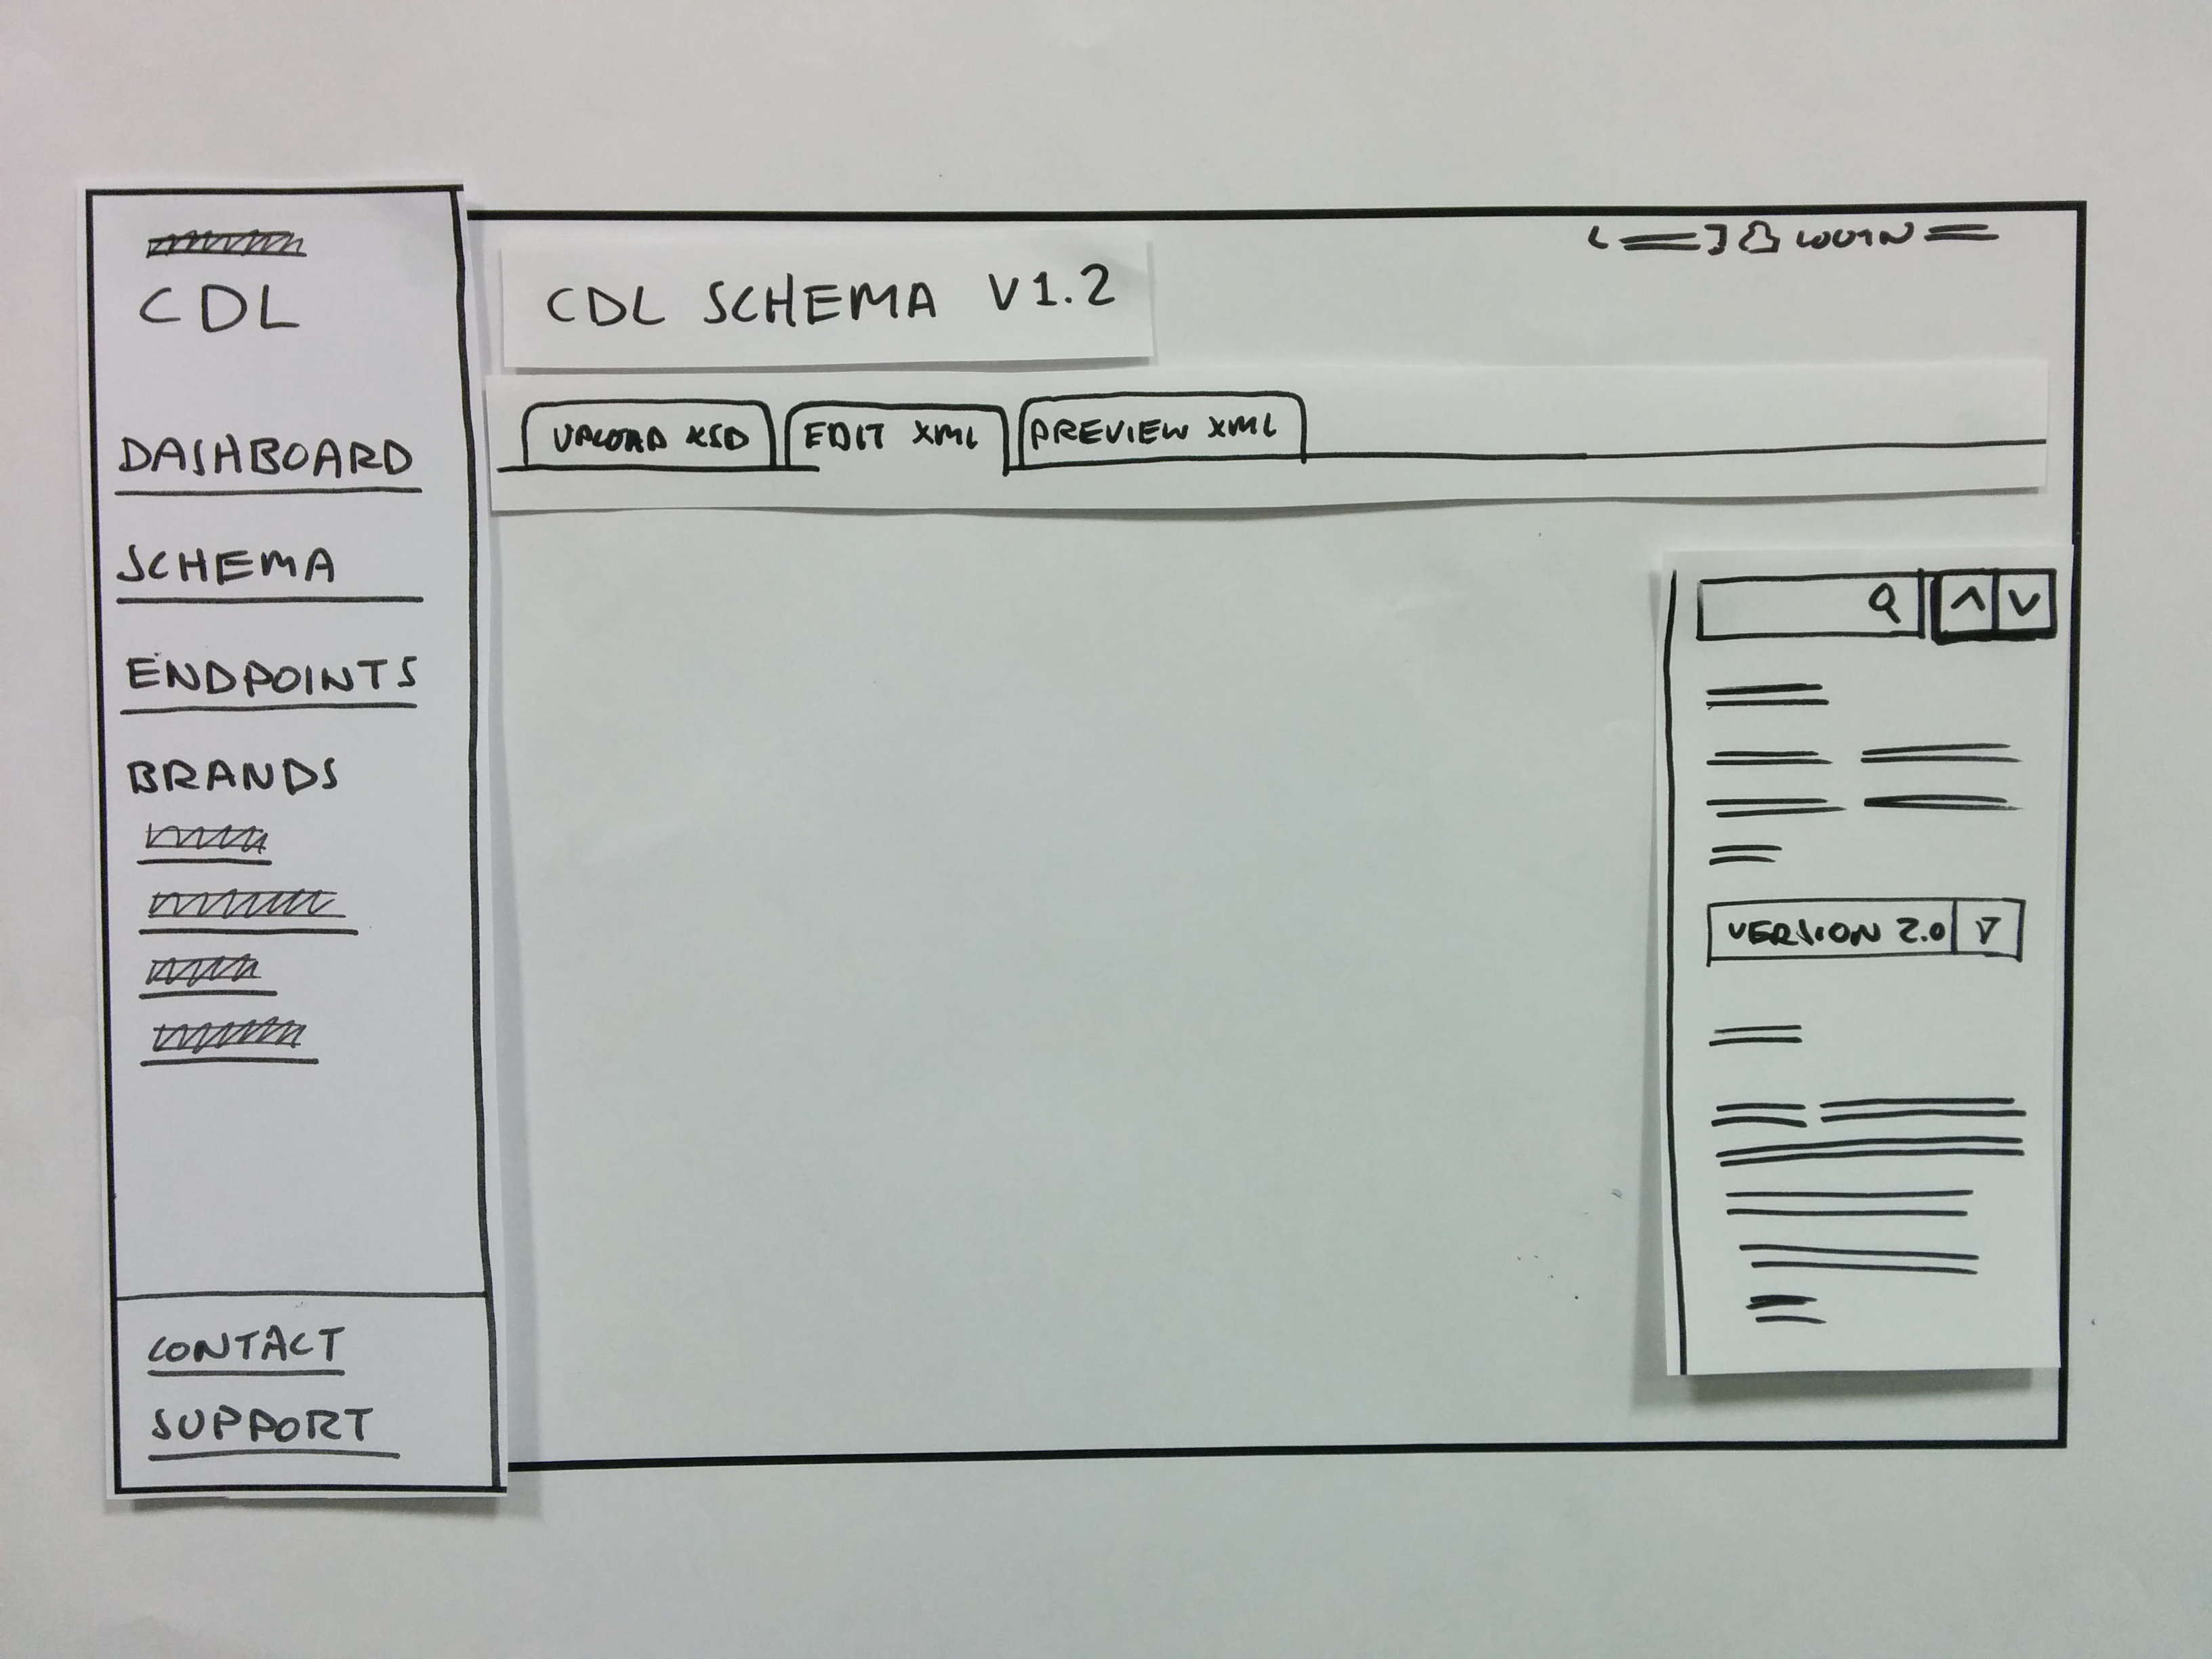 CDL
DASHBOARD
SCHEMA
ENDPOINTS
BRANDS
CONTACT
SUPPORT
LOGIN
CDL SCHEMA V1.2
UPLOAD XSD
EDIT XML
PREVIEW XML
VERSION 2.0